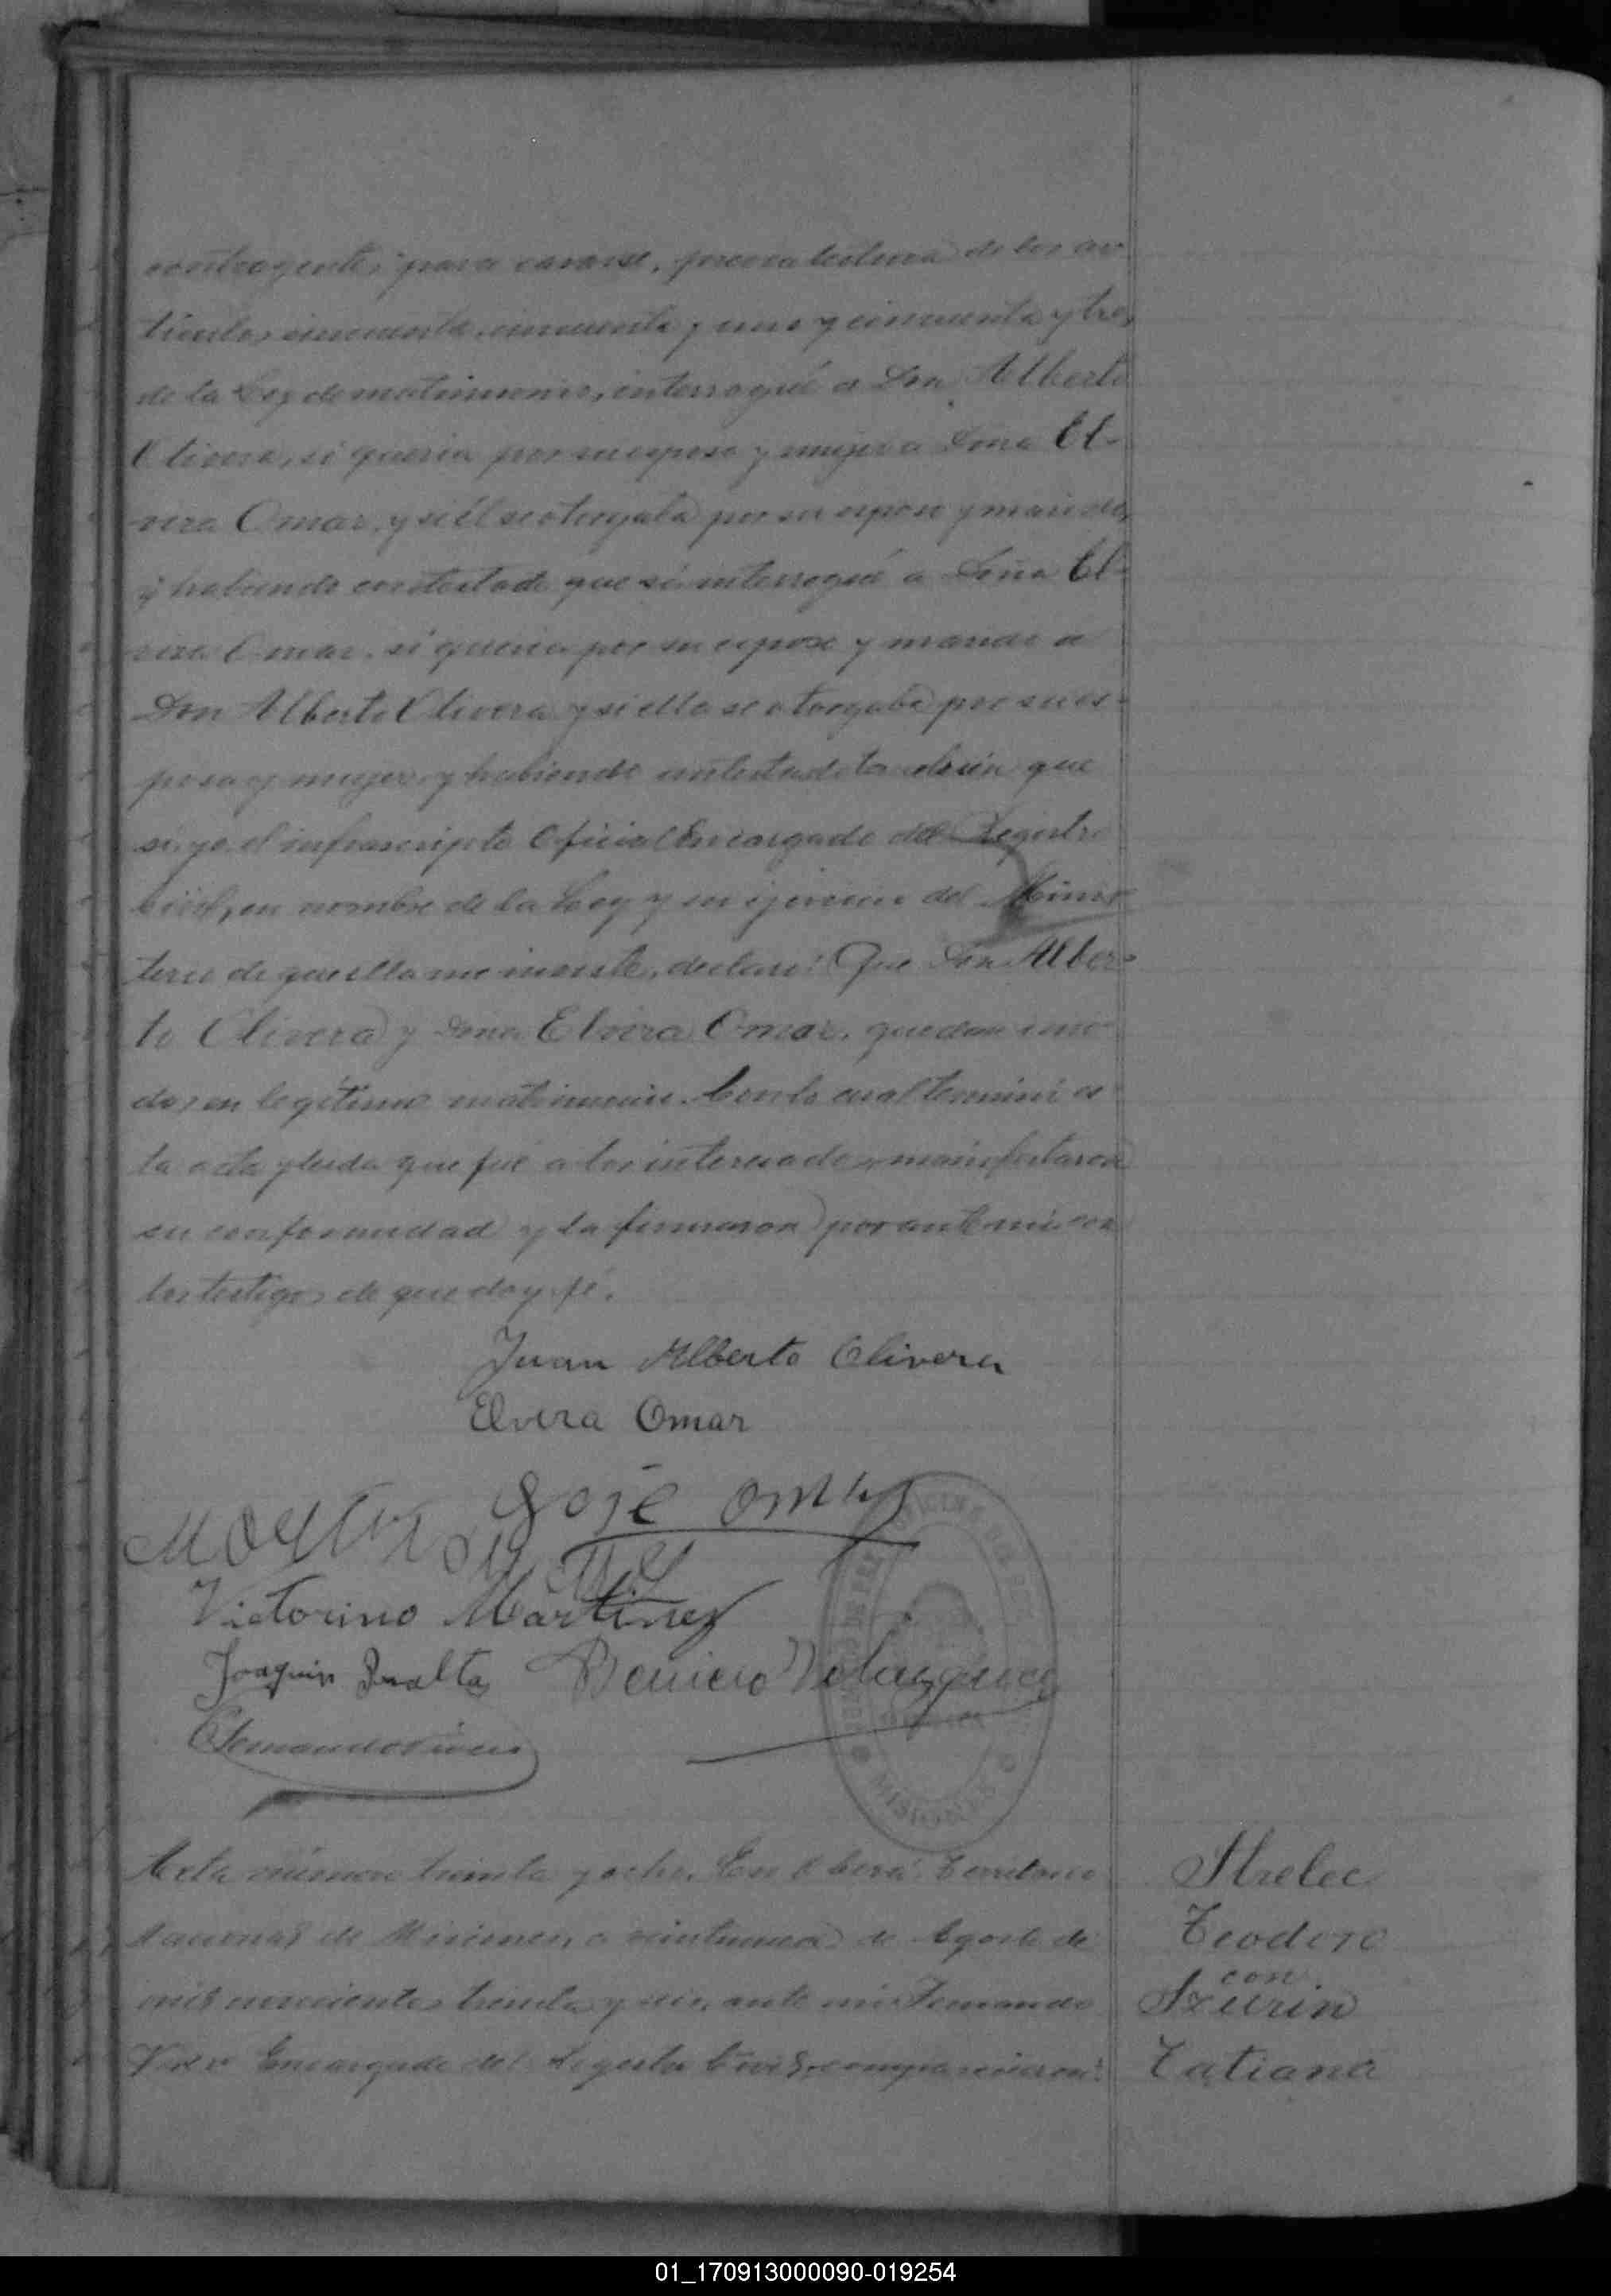 contrayentes para casarse, previa lectura de los ar-
tículos cincuenta, cincuenta y uno y cincuenta y tres
de la Ley de matrimonio, interrogué a Don Alberto
Olivera, si queria por su esposa y mujer a Doña El-
vira Omar, y si él se otorgaba por su esposo y marido,
y habiendo contestado que sí interrogué a Doña El-
vira Omar, si queria por su esposo y marido a
Don Alberto Olivera y si ella se otorgaba por su es-
posa y mujer, y habiendo contestado también que
si, yo el infrascripto Oficial Encargado del Registro
Civil, en nombre de la Ley y en ejercicio del Minis-
terio de que ella me inviste, declaro: Que Don Alber-
to Olivera y Doña Elvira Omar, quedan uni-
dos en legítimo matrimonio. Con lo cual terminó es-
ta acta y leida que fué a los interesados manifestaron
su conformidad y la firmaron por ante mi con
los testigos de que doy fé.
Juan Alberto Olivera
Elvira Omar
José Omar
Victorino Martinez
Joaquin Peralta Benicio Velazquez
MISIONES
Acta número treinta y ocho. En Oberá, Territorio
Nacional de Misiones, a veintinueve de Agosto de
mil novecientos treinta y seis, ante mi Fernando
Encargado del Registro Civil, comparecieron:
Strelec
Teodoro
con
Szurin
Tatiana
01_170913000090-019254